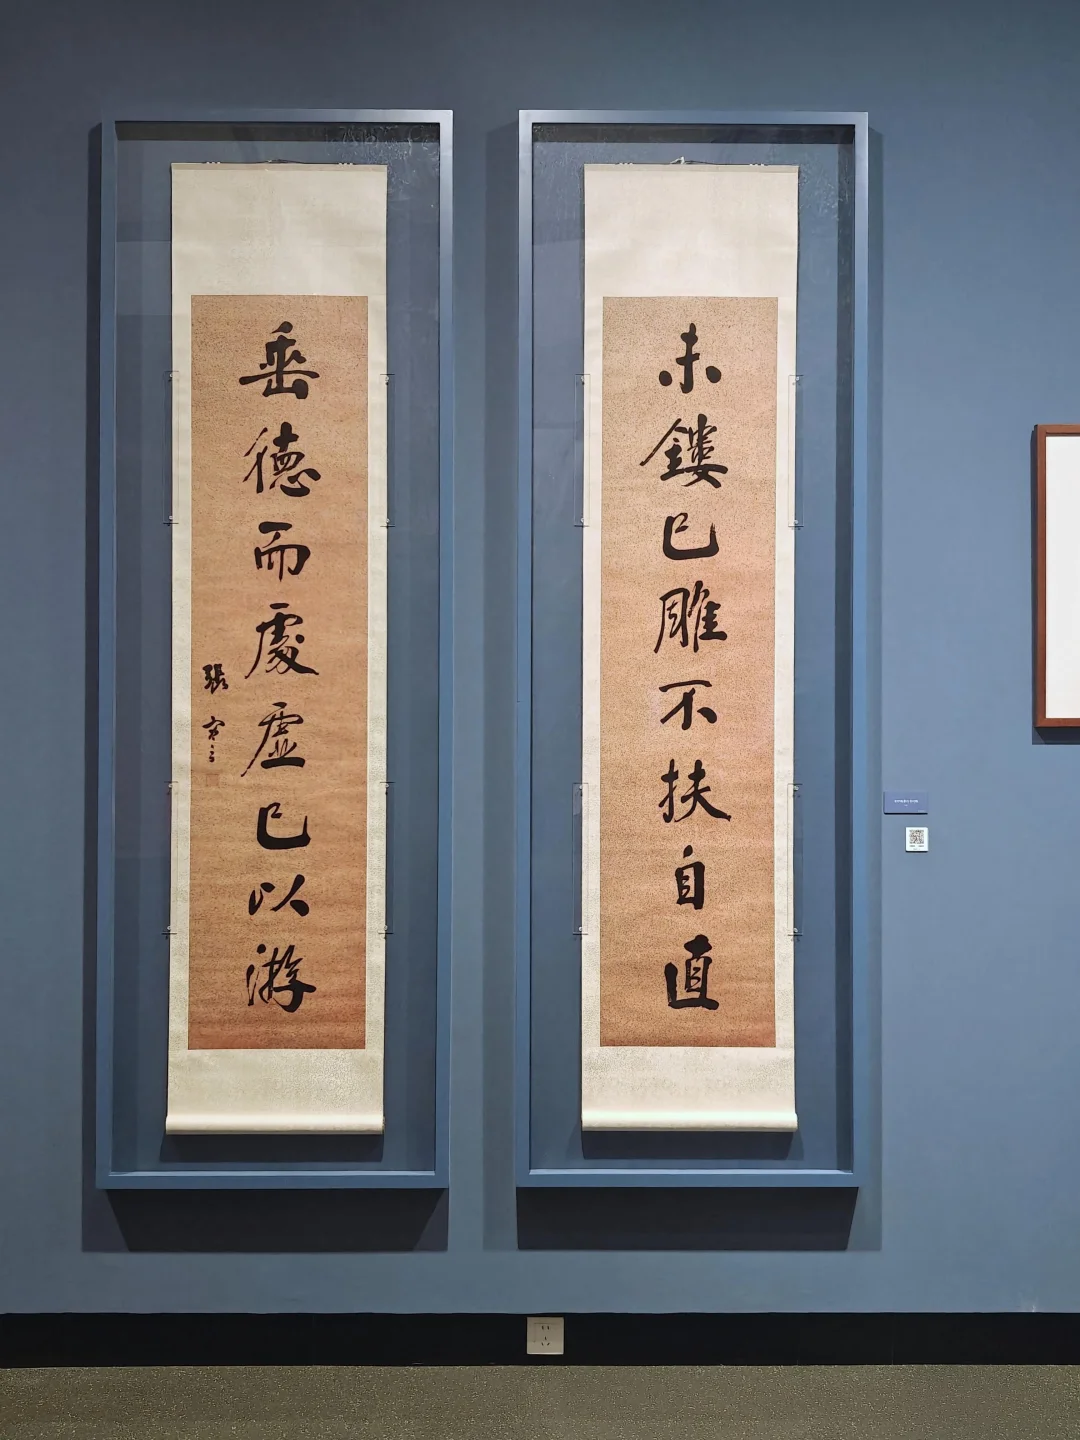 未鏤已雕不扶自直
垂德而處虛己以游
張謇